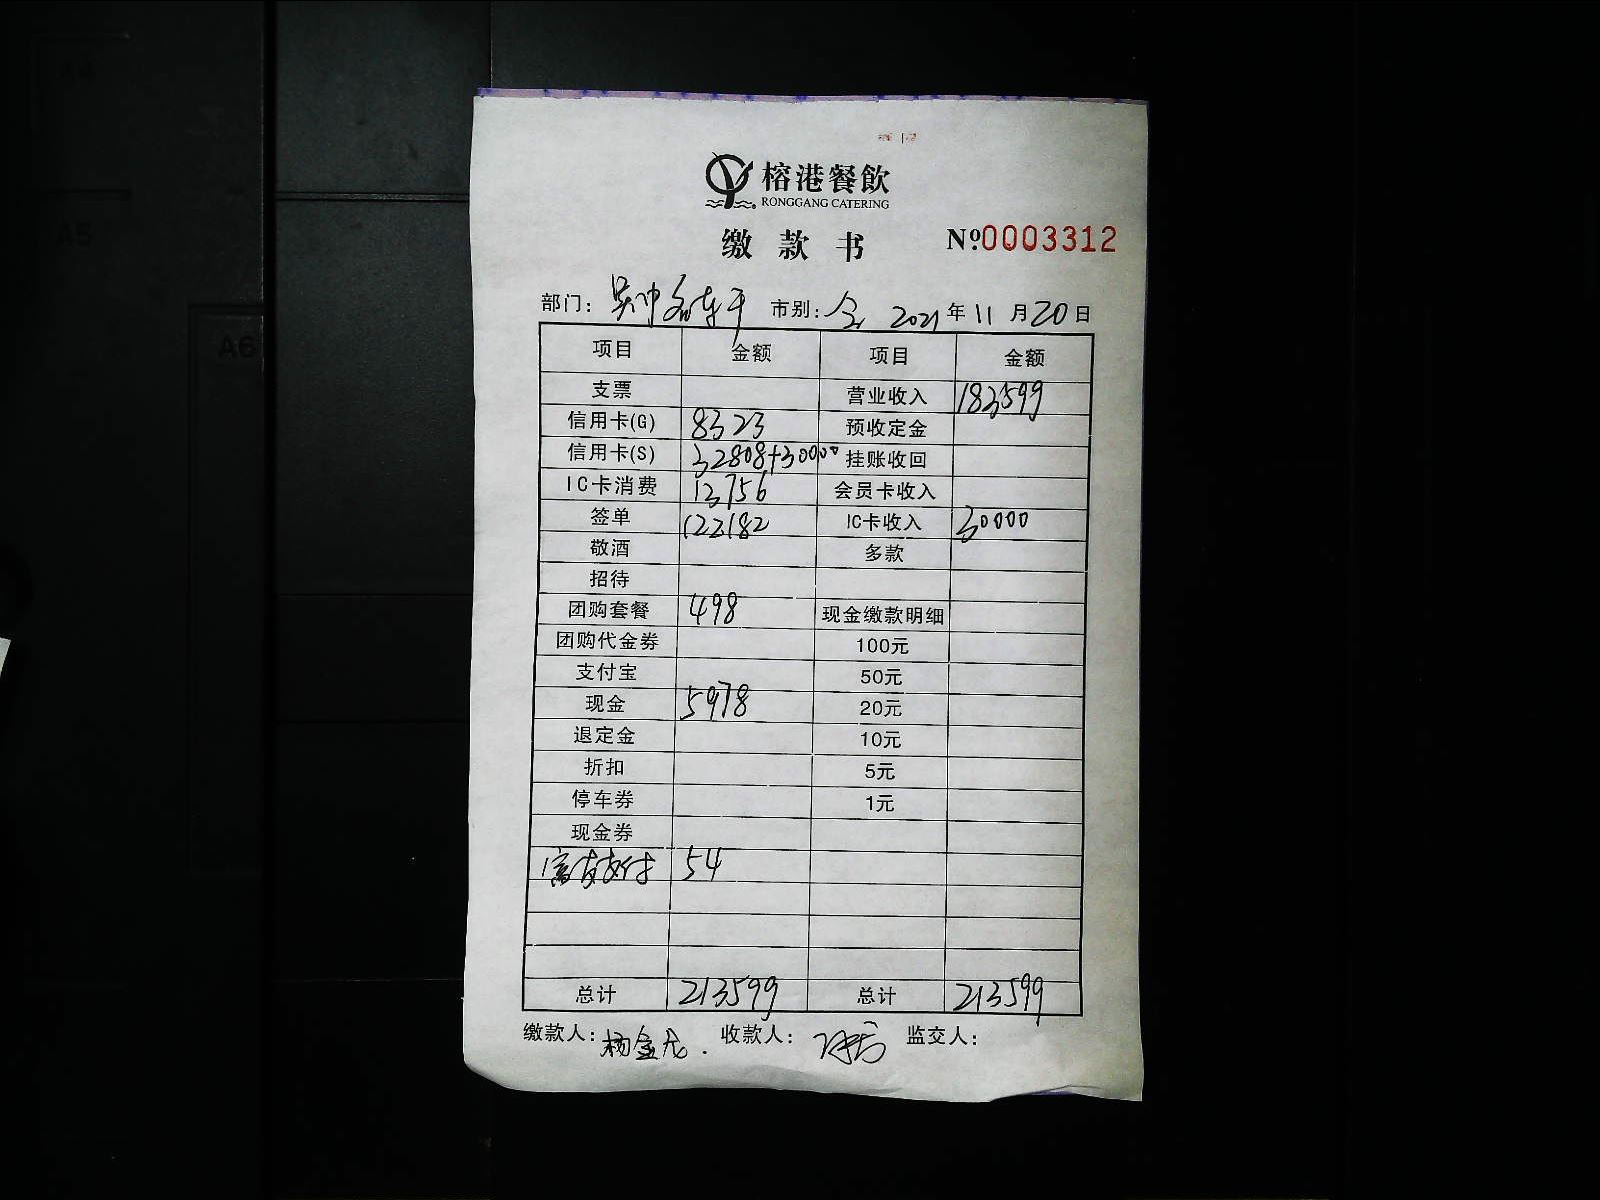 榕港餐飲
RONGGANG CATERING
缴款书 Nº0003312
部门: 市别: 全 2021年11月20日
项目 金额 项目 金额
支票 营业收入 183599
信用卡(G) 8323 预收定金
信用卡(S) 32808+30000 挂账收回
IC卡消费 13756 会员卡收入
签单 122182 IC卡收入 30000
敬酒 多款
招待
团购套餐 498 现金缴款明细
团购代金券 100元
支付宝 50元
现金 5978 20元
退定金 10元
折扣 5元
停车券 1元
现金券
支付 54
总计 213599 总计 213599
缴款人: 杨金龙. 收款人: 监交人: